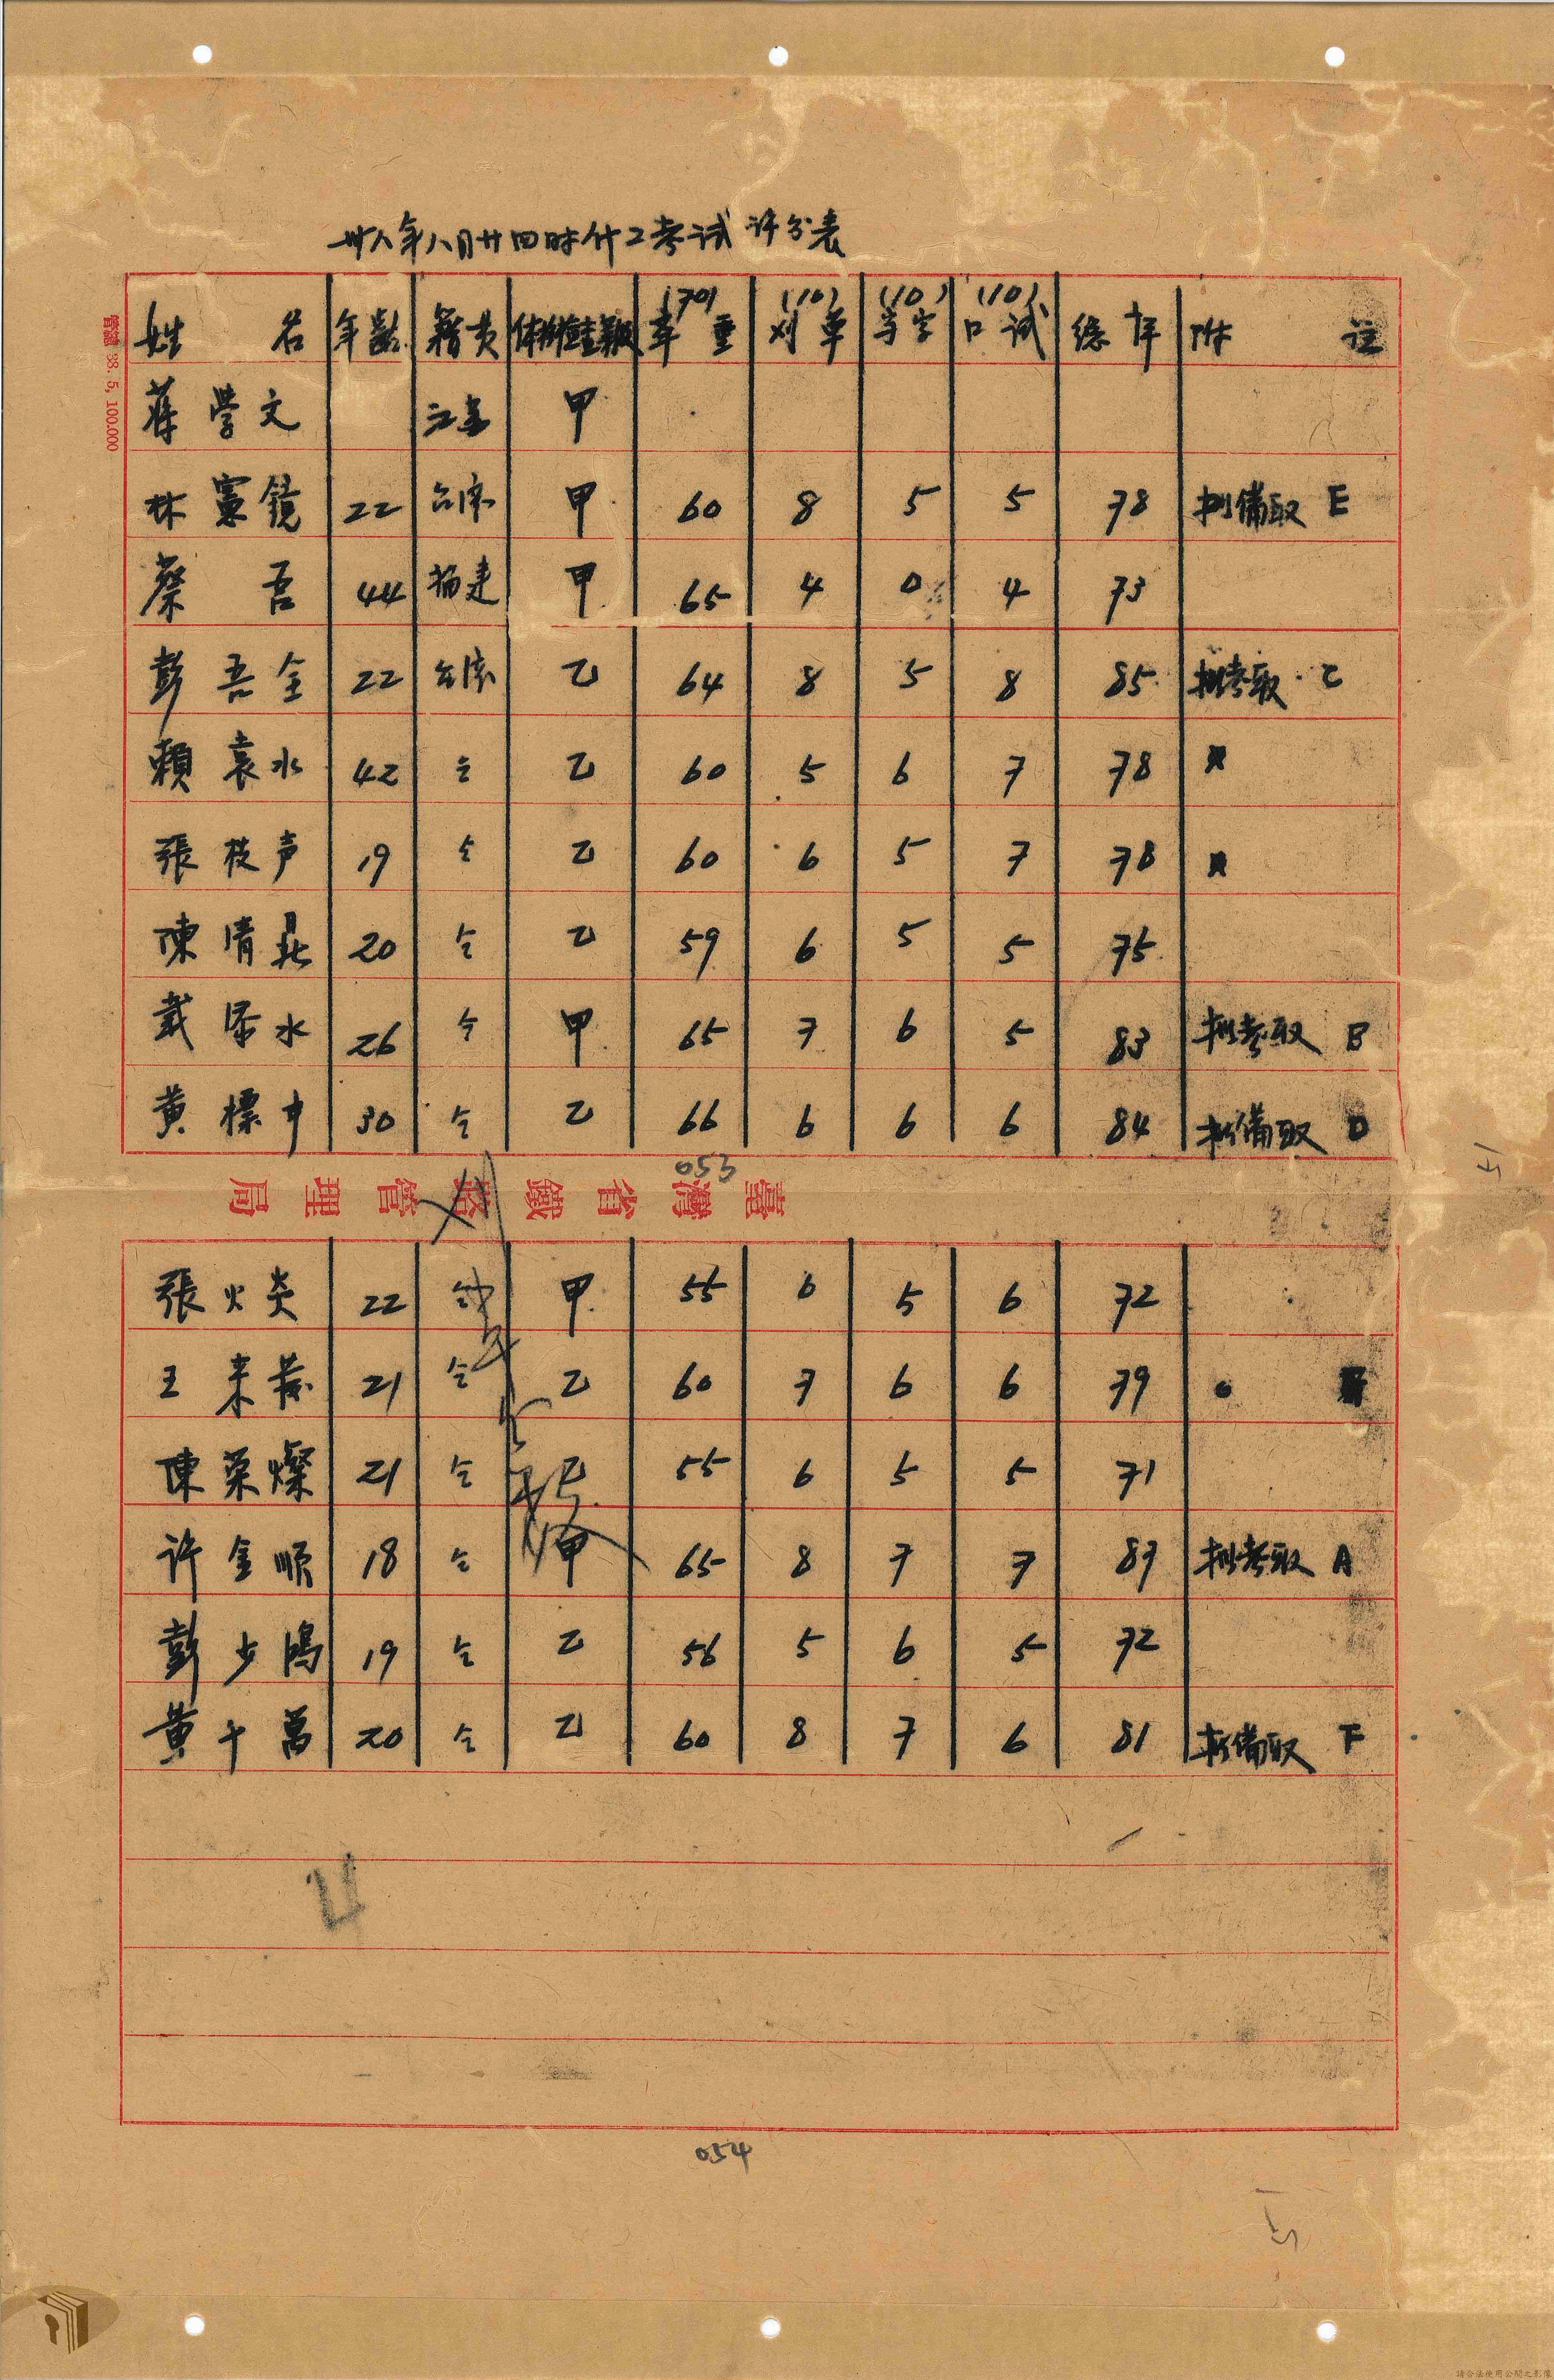 卅八年八月廿四時什工考试评分表
(70) (10) (10) (10)
姓名 年齡 籍贯 幸重 刈草 写字 口试 總评 附註
管譜 38. 5, 100,000
蔣学文 江 甲
林憲鏡 22 台湾 甲 60 8 5 5 78 拟備取 E
蔡吾 44 福建 甲 65 4 0 4 73
彭吾全 22 台湾 乙 64 8 5 8 85 拟考取 C
賴袁水 42 仝 乙 60 5 6 7 78
張枝声 19 仝 乙 60 6 5 7 78
陳清 20 仝 乙 59 6 5 5 75
戴添水 26 仝 甲 65 7 6 5 83 拟考取 B
黄標 30 仝 乙 66 6 6 6 84 拟備取 D
053
臺灣省鐵路管理局
張火炎 22 仝 甲 55 6 5 6 72
王来 21 仝 乙 60 7 6 6 79
陳荣燦 21 仝 乙 55 6 5 5 71
许金順 18 仝 甲 65 8 7 7 87 拟考取 A
彭少鴻 19 仝 乙 56 5 6 5 72
黄千萬 20 仝 乙 60 8 7 6 81 拟備取 F
054
請合法使用公開之影像